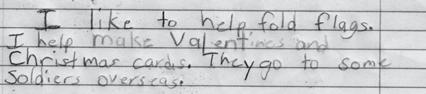 I like to help fold flags.
I help make Valentines and
Christmas cards. They go to some
Soldiers overseas.